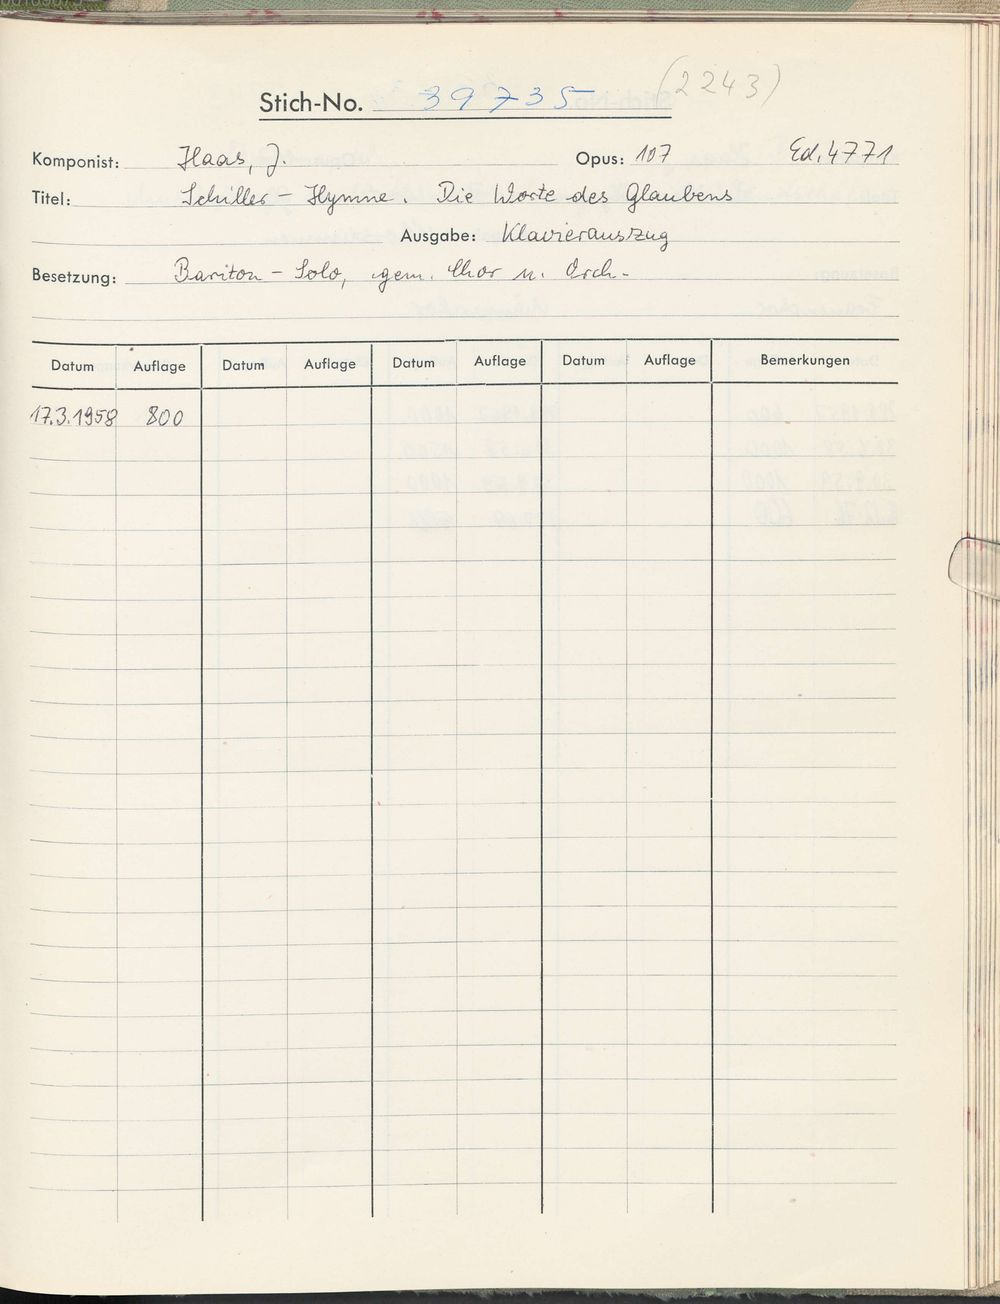 Stich-No. 39735 (2243)
Komponist: Haas, J. Opus: 107 Ed. 4771
Titel: Schiller - Hymne. Die Worte des Glaubens
Ausgabe: Klavierauszug
Besetzung: Bariton - Solo, gem. Chor u. Orch.
Datum Auflage Datum Auflage Datum Auflage Datum Auflage Bemerkungen
17.3.1958 800